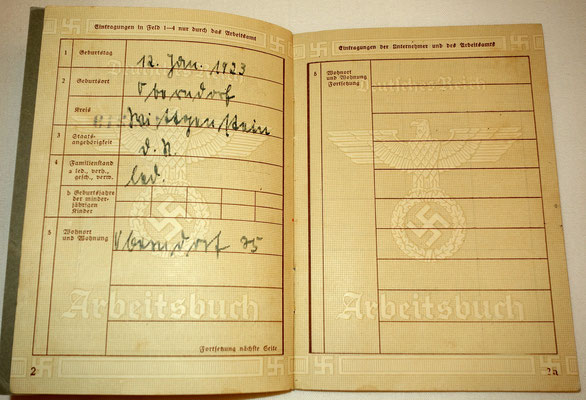 Eintragungen in Feld 1—4 nur durch das Arbeitsamt
1 Geburtstag 12. Jan. 1923
2 Geburtsort Oberndorf
Kreis Wittgenstein
3 Staats-
angehörigkeit d. R.
4 Familienstand
a led., verh.,
gesch., verw. led.
b Geburtsjahre
der minder-
jährigen
Kinder
5 Wohnort
und Wohnung Oberndorf 25
Arbeitsbuch
Fortsetzung nächste Seite
2
Eintragungen der Unternehmer und des Arbeitsamts
5 Wohnort
und Wohnung
Fortsetzung
Deutsches Reich
Arbeitsbuch